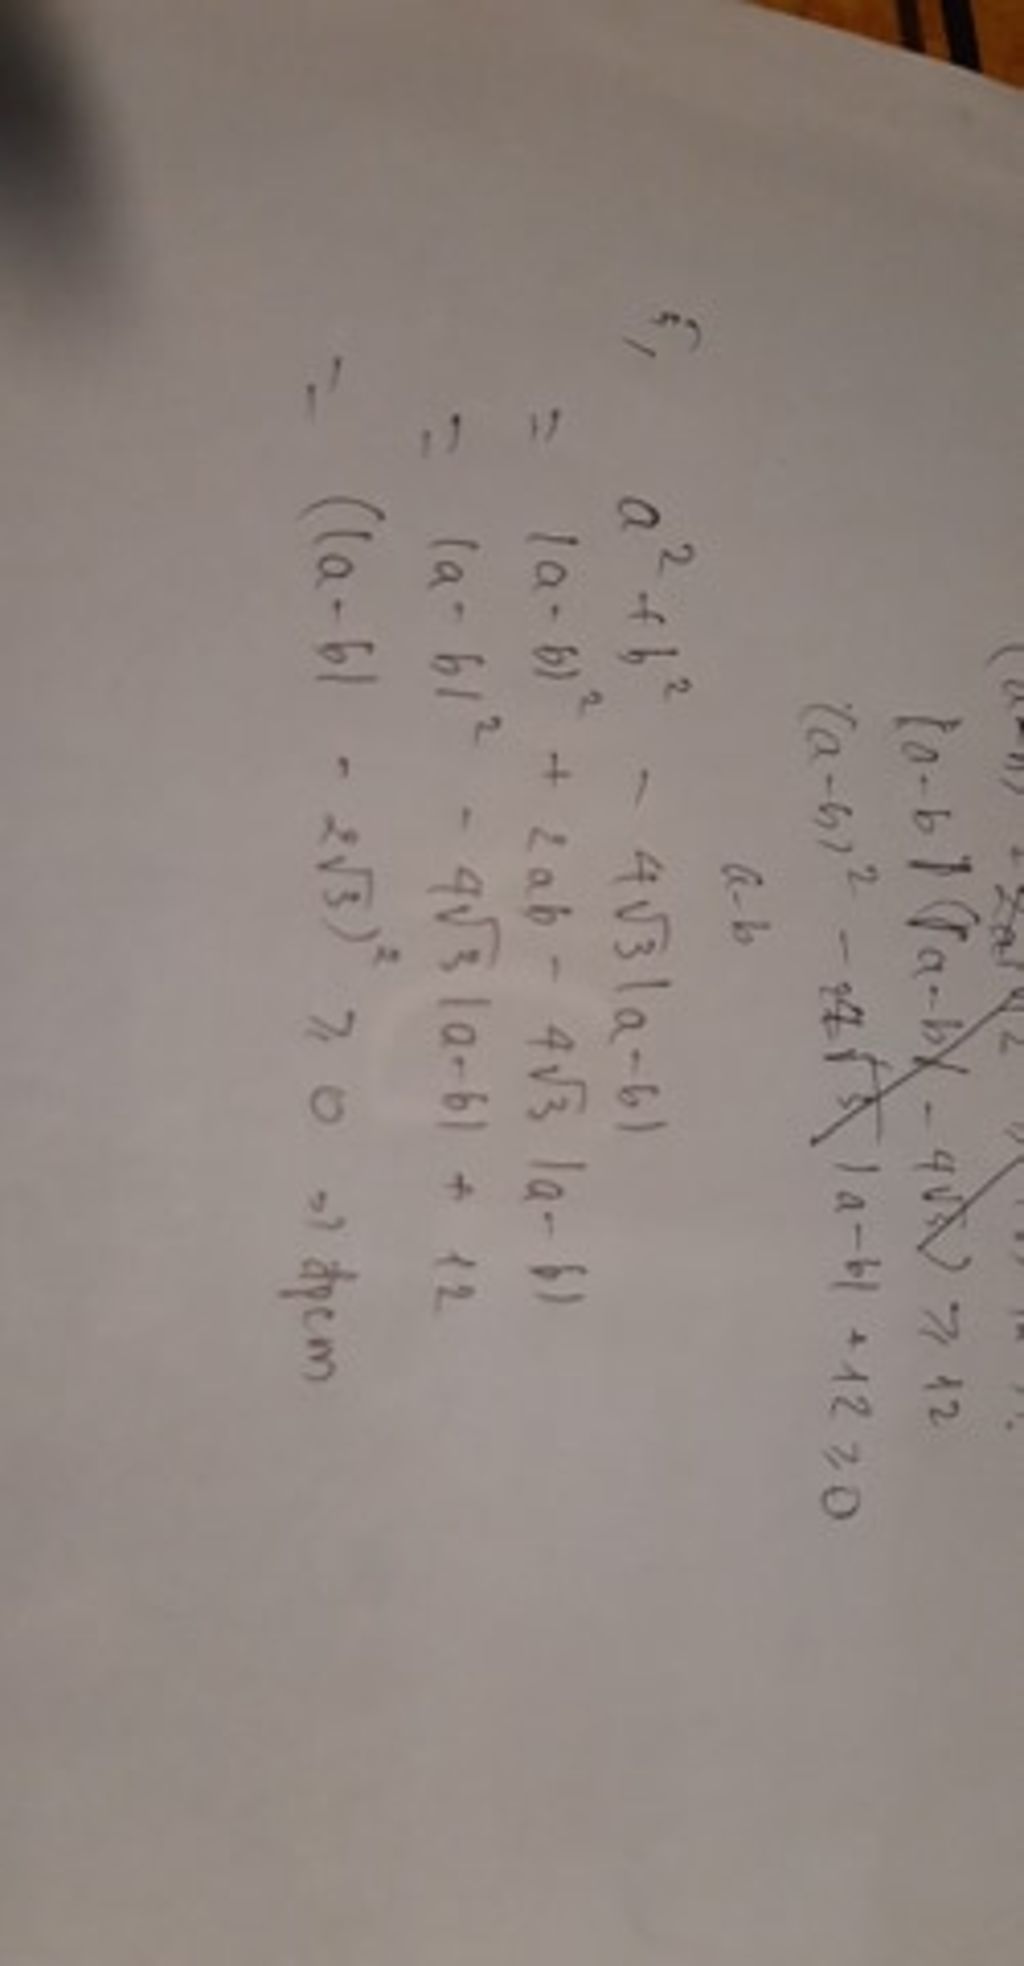 |a-b| (|a-b| - 4√3) ≥ 12
(a-b)² - 4√3 |a-b| + 12 ≥ 0
a-b
a² + b² - 4√3 |a-b|
= |a-b|² + 2ab - 4√3 |a-b|
= |a-b|² - 4√3 |a-b| + 12
= (|a-b| - 2√3)² ≥ 0 => đpcm